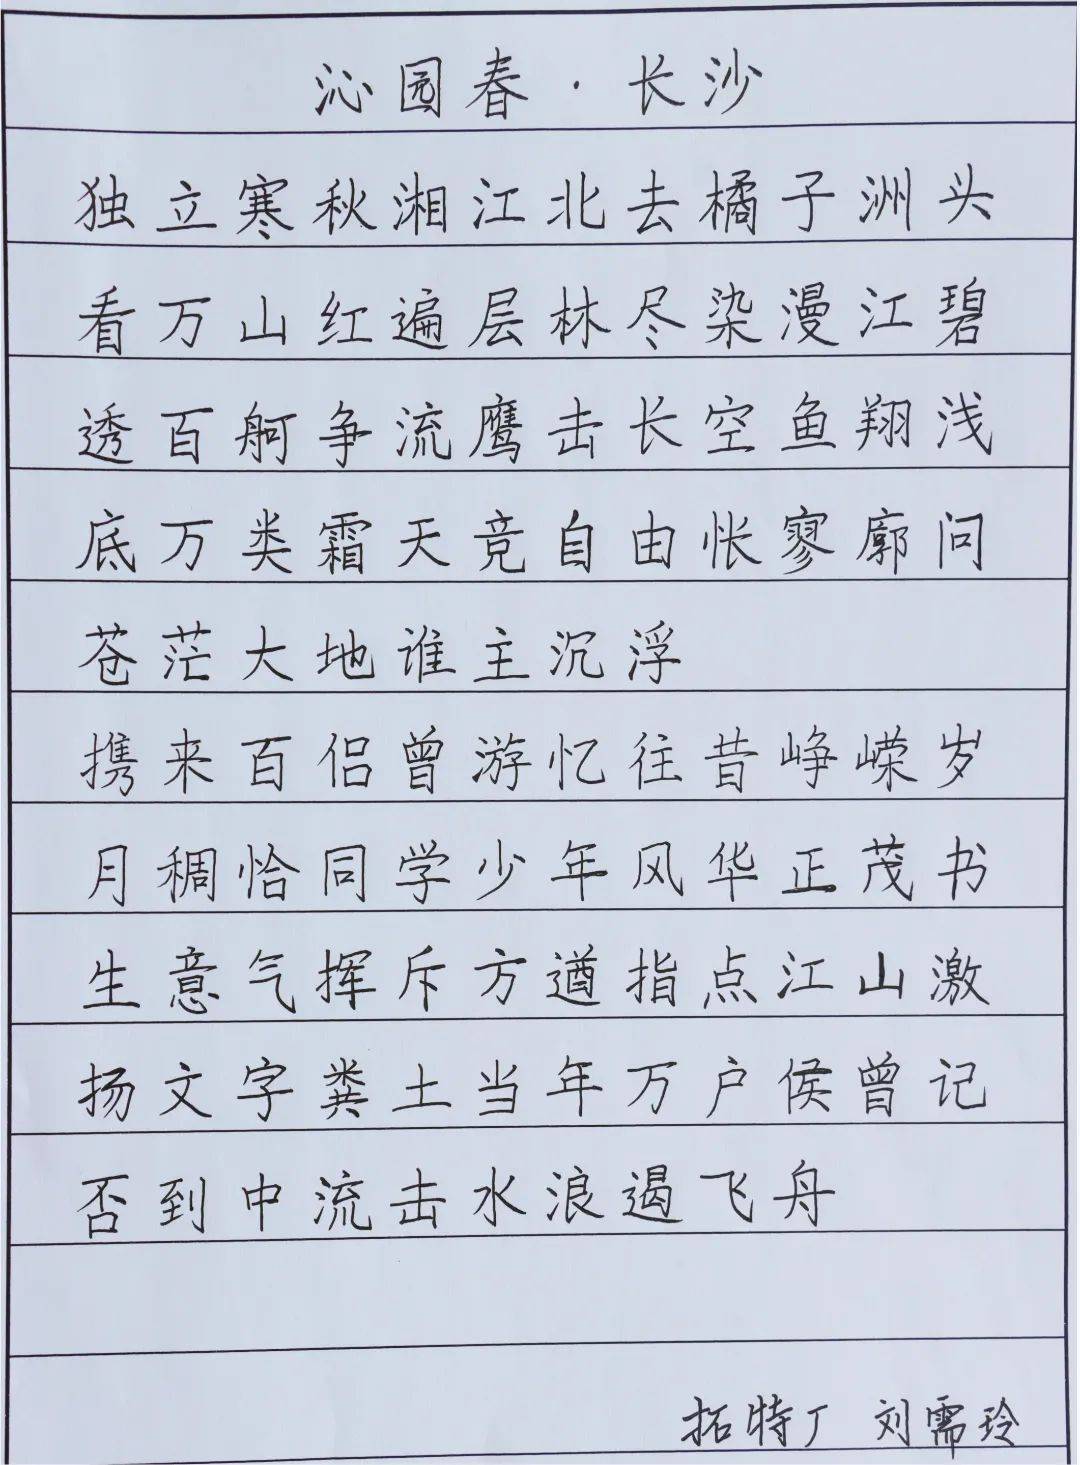 沁园春·长沙
独立寒秋湘江北去橘子洲头
看万山红遍层林尽染漫江碧
透百舸争流鹰击长空鱼翔浅
底万类霜天竞自由怅寥廓问
苍茫大地谁主沉浮
携来百侣曾游忆往昔峥嵘岁
月稠恰同学少年风华正茂书
生意气挥斥方遒指点江山激
扬文字粪土当年万户侯曾记
否到中流击水浪遏飞舟
拓特厂 刘需玲